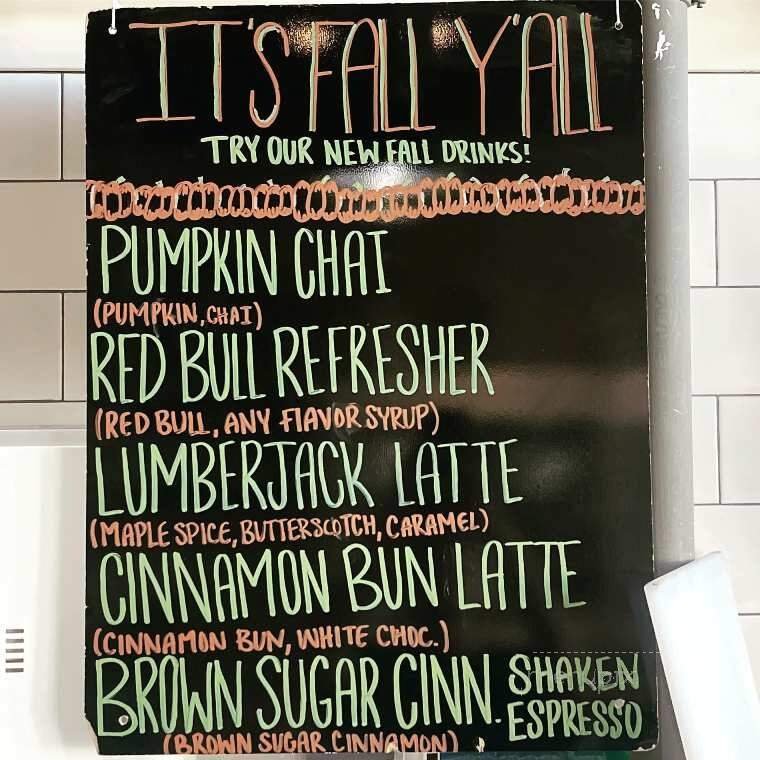 IT'S FALL Y'ALL
TRY OUR NEW FALL DRINKS!
PUMPKIN CHAI
(PUMPKIN, CHAI)
RED BULL REFRESHER
(RED BULL, ANY FLAVOR SYRUP)
LUMBERJACK LATTE
(MAPLE SPICE, BUTTERSCOTCH, CARAMEL)
CINNAMON BUN LATTE
(CINNAMON BUN, WHITE CHOC.)
BROWN SUGAR CINN. SHAKEN ESPRESSO
(BROWN SUGAR CINNAMON)